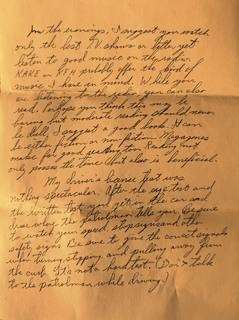 In the evenings, I suggest you watch
only the best T.V. shows or better yet
listen to good music on the radio.
probably offer the kind of
music I have in mind. While you
are listening to the radio you can also
read. Perhaps you think this may be
boring but moderate reading should never
be dull. I suggest a good book. It can
be either fiction or non-fiction. Magazines
make for good, Reading not
only passes the time but also is beneficial.
My driver's license test was
nothing spectacular. After the eye test and
the written test you get in the car and
drive where the patrolman tells you. Be sure
to watch your speed, stop signs and other
safety signs. Be sure to give the correct signals
when turning, stopping, and pulling away from
the curb. It's not a hard test. (Don't talk
to the patrolman while driving.)